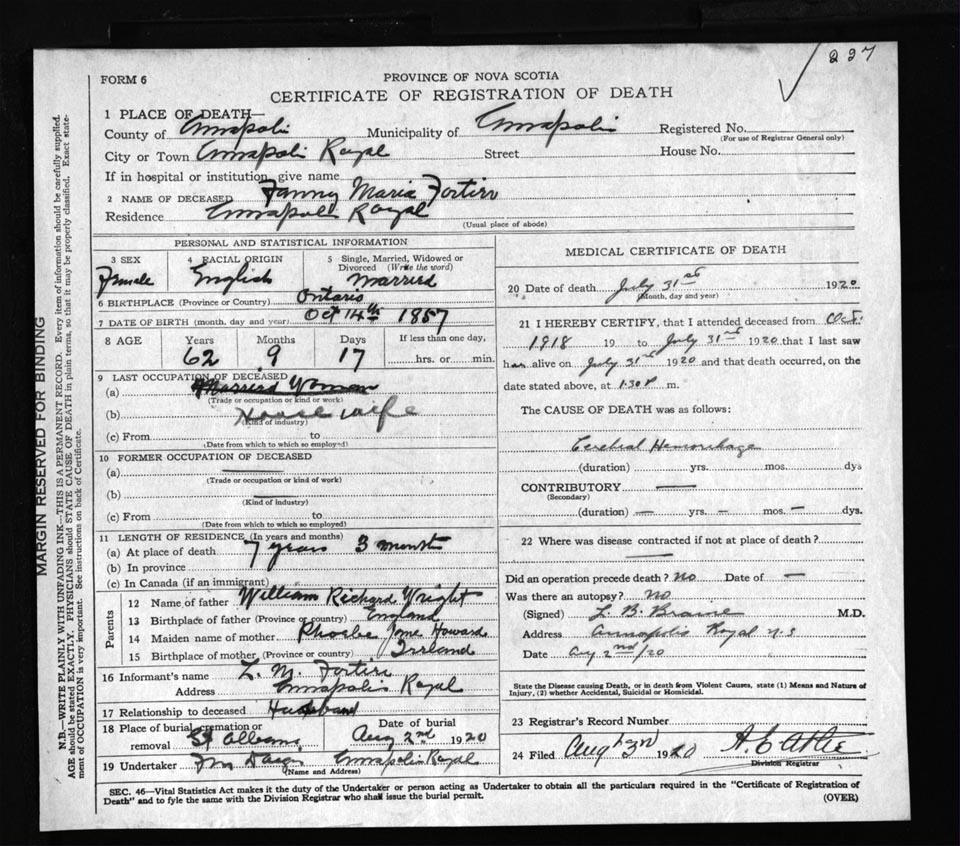 227
FORM 6
PROVINCE OF NOVA SCOTIA
CERTIFICATE OF REGISTRATION OF DEATH
1 PLACE OF DEATH—
County of Annapolis Municipality of Annapolis Registered No.
(For use of Registrar General only)
City or Town Annapolis Royal Street House No.
If in hospital or institution, give name
2 NAME OF DECEASED Fanny Maria Fortier
Residence Annapolis Royal
(Usual place of abode)
PERSONAL AND STATISTICAL INFORMATION
3 SEX 4 RACIAL ORIGIN 5 Single, Married, Widowed or Divorced (Write the word)
Female English Married
6 BIRTHPLACE (Province or Country) Ontario
7 DATE OF BIRTH (month, day and year) Oct 14th 1857
8 AGE Years Months Days If less than one day,
62 9 17 hrs. or min.
9 LAST OCCUPATION OF DECEASED
(a) Married Woman
(Trade or occupation or kind or work)
(b) House wife
(Kind of industry)
(c) From to
(Date from which to which so employed)
10 FORMER OCCUPATION OF DECEASED
(a) —
(Trade or occupation or kind of work)
(b) —
(Kind of industry)
(c) From to
(Date from which to which so employed)
11 LENGTH OF RESIDENCE (In years and months)
(a) At place of death 7 years 3 months
(b) In province
(c) In Canada (if an immigrant)
Parents
12 Name of father William Richard Wright
13 Birthplace of father (Province or country) England
14 Maiden name of mother Phoebe Jane Howard
15 Birthplace of mother, (Province or country) Ireland
16 Informant's name L. M. Fortier
Address Annapolis Royal
17 Relationship to deceased Husband
18 Place of burial, cremation or removal St Albans Date of burial Aug 2nd 1920
19 Undertaker Annapolis Royal
(Name and Address)
MEDICAL CERTIFICATE OF DEATH
20 Date of death July 31st 1920
(Month, day and year)
21 I HEREBY CERTIFY, that I attended deceased from Oct.
1918 19 to July 31st 1920 that I last saw
her alive on July 31st 1920 and that death occurred, on the
date stated above, at 1.30 P m.
The CAUSE OF DEATH was as follows:
Cerebral Hemorrhage
(duration) yrs. mos. dys
CONTRIBUTORY —
(Secondary)
(duration) — yrs. — mos. — dys.
22 Where was disease contracted if not at place of death?
—
Did an operation precede death? No Date of —
Was there an autopsy? no
(Signed) L. B. Braine M.D.
Address Annapolis Royal N.S
Date Aug 2nd/20
State the Disease causing Death, or in death from Violent Causes, state (1) Means and Nature of
Injury, (2) whether Accidental, Suicidal or Homicidal.
23 Registrar's Record Number
24 Filed Aug 2nd 1920
Division Registrar
SEC. 46—Vital Statistics Act makes it the duty of the Undertaker or person acting as Undertaker to obtain all the particulars required in the "Certificate of Registration of
Death" and to fyle the same with the Division Registrar who shall issue the burial permit.
(OVER)
MARGIN RESERVED FOR BINDING
N.B.—WRITE PLAINLY WITH UNFADING INK—THIS IS A PERMANENT RECORD. Every item of information should be carefully supplied.
AGE should be stated EXACTLY. PHYSICIANS should STATE CAUSE OF DEATH in plain terms, so that it may be properly classified. Exact state-
ment of OCCUPATION is very important. See instructions on back of Certificate.